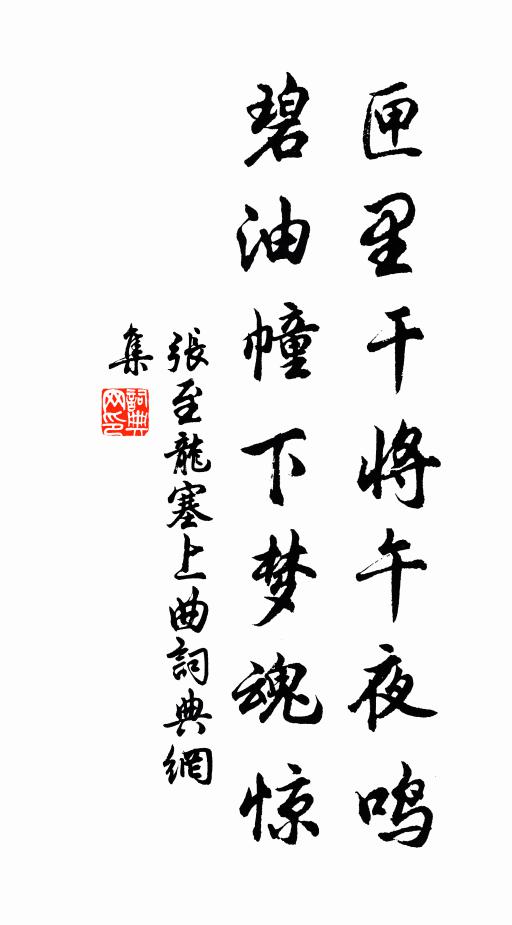 匣里干将午夜鸣
碧油幢下梦魂惊
張至龍塞上曲詞典網
集
詞典
网印